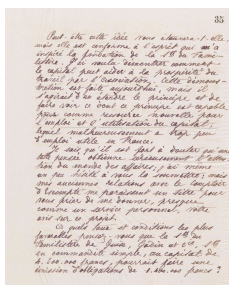 35
Peut être cette idée vous étonnera-t-elle,
mais elle est conforme à l'esprit qui m'a
inspiré la fondation de la Sté du Fami-
listère. J'ai voulu démontrer comment
le capital peut aider à la prospérité du
travail par l'association. Cette démons-
tration est faite aujourd'hui, mais il
s'agirait d'en étendre le principe et de
faire voir ce dont ce principe est capable
pris comme ressource nouvelle pour
l'emploi et l'utilisation du capital,
lequel malheureusement a trop peu
d'emploi utile en France.
Je sais qu'il est fort à douter que une
telle pensée obtienne sérieusement l'atten-
tion du monde des affaires, j'ai même
un peu hésité à vous la soumettre; mais
mes anciennes relations avec le Comptoir
d'Escompte me paraissent un titre pour
vous prier de me donner, presque
comme un service personnel, votre
avis sur ce projet.
À quel taux et conditions les plus
favorables pensez-vous que la Sté du
Familistère de Guise, Godin et Cie, Sté
en commandite simple, au capital de
6.000.000 francs, pourrait faire une
émission d'obligations de francs?